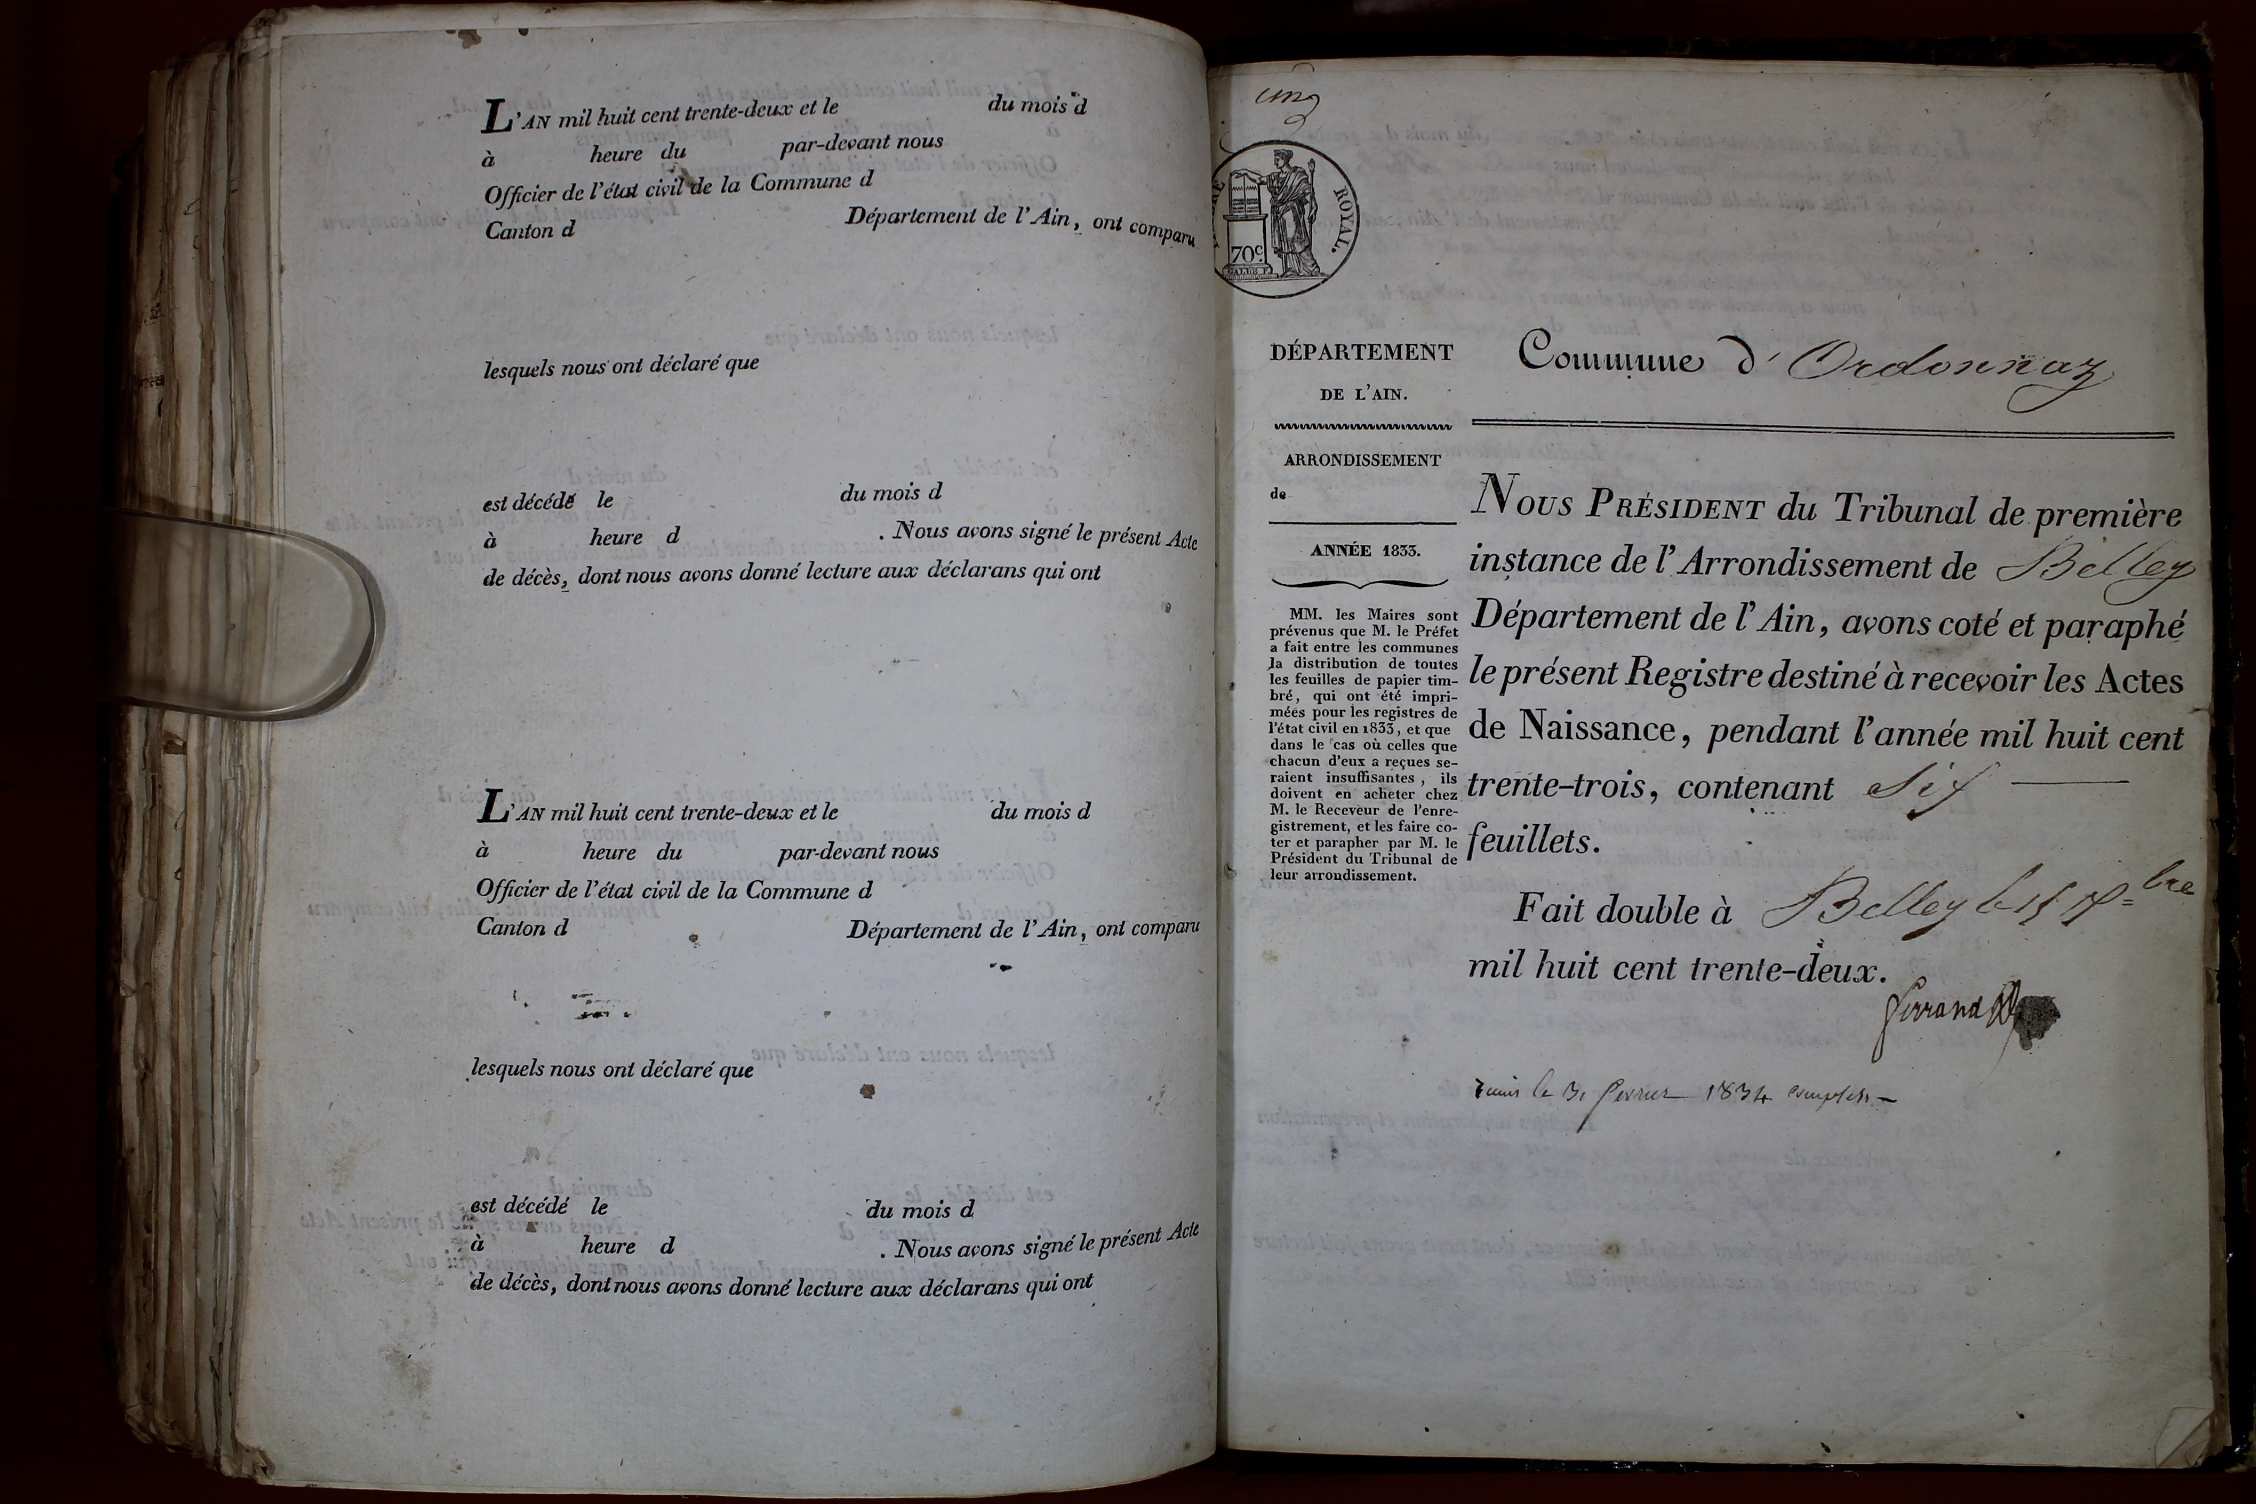 L'AN mil huit cent trente-deux et le du mois d
à heure du par-devant nous
Officier de l'état civil de la Commune d
Canton d Département de l'Ain, ont comparu
lesquels nous ont déclaré que
est décédé le du mois d
à heure d . Nous avons signé le présent Acte
de décès, dont nous avons donné lecture aux déclarans qui ont
L'AN mil huit cent trente-deux et le du mois d
à heure du par-devant nous
Officier de l'état civil de la Commune d
Canton d Département de l'Ain, ont comparu
lesquels nous ont déclaré que
est décédé le du mois d
à heure d . Nous avons signé le présent Acte
de décès, dont nous avons donné lecture aux déclarans qui ont
ROYAL.
70c.
DÉPARTEMENT
DE L'AIN.
ARRONDISSEMENT
de
ANNÉE 1833.
MM. les Maires sont
prévenus que M. le Préfet
a fait entre les communes
la distribution de toutes
les feuilles de papier tim-
bré, qui ont été impri-
mées pour les registres de
l'état civil en 1833, et que
dans le cas où celles que
chacun d'eux a reçues se-
raient insuffisantes, ils
doivent en acheter chez
M. le Receveur de l'enre-
gistrement, et les faire co-
ter et parapher par M. le
Président du Tribunal de
leur arrondissement.
Commune d'Ordonnaz
NOUS PRÉSIDENT du Tribunal de première
instance de l'Arrondissement de Belley
Département de l'Ain, avons coté et paraphé
le présent Registre destiné à recevoir les Actes
de Naissance, pendant l'année mil huit cent
trente-trois, contenant Six
feuillets.
Fait double à Belley le 15
mil huit cent trente-deux.
le 3 fevrier 1834